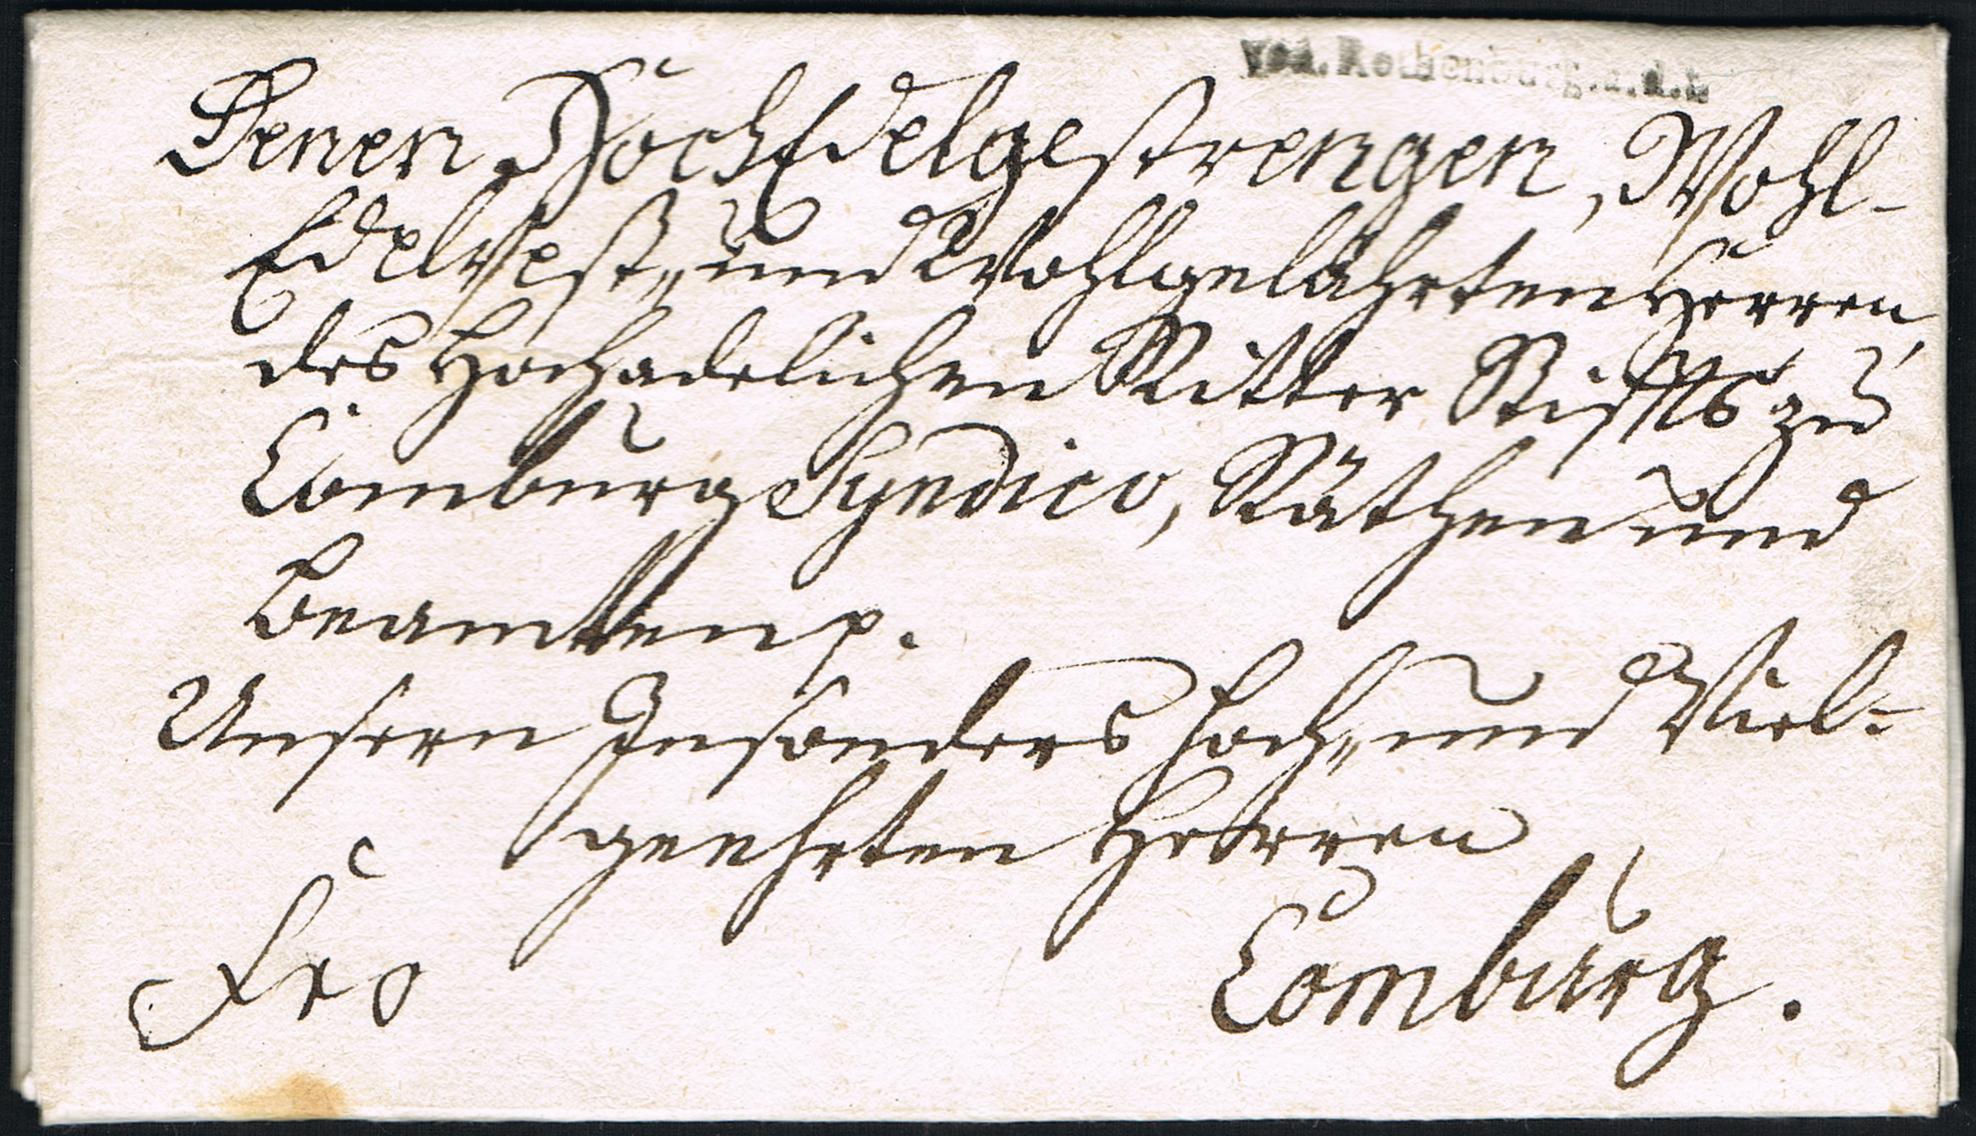 von. Rothenburg.a.d.t.
Denen HochEdelgestrengen, Wohl-
Edelvest„ und Wohlgelährten Herren,
des Hochadelichen Ritter Stiffts zu
Comburg Syndico, Räthen und
Beamtten p.
Unsern Insonders Hoch„ und Viel-
geehrten Herren
Fro
Comburg.